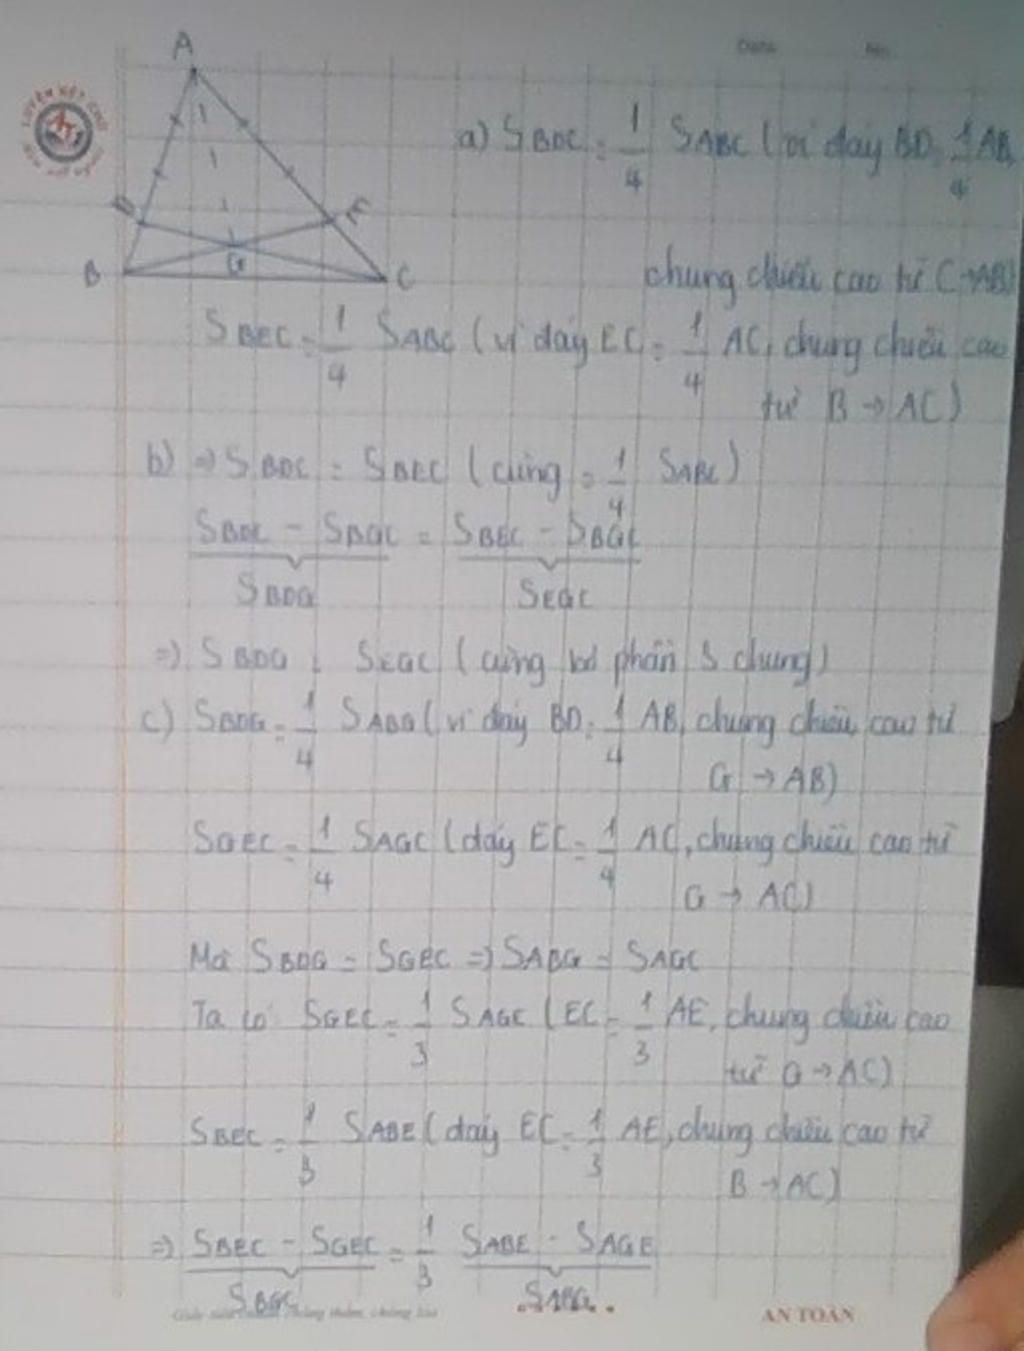 A
D
E
B
G
C
a) SBDC = 1/4 SABC (vì đáy BD = 1/4 AB,
chung chiều cao từ C → AB)
SBEC = 1/4 SABC (vì đáy EC = 1/4 AC, chung chiều cao
từ B → AC)
b) => SBDC = SBEC (cùng = 1/4 SABC)
SBDC - SBGC = SBEC - SBGC
SBDG SEGC
=) SBDG = SEGC (cùng bớt phần S chung)
c) SBDG = 1/4 SABG (vì đáy BD = 1/4 AB, chung chiều cao từ
G → AB)
SGEC = 1/4 SAGC (đáy EC = 1/4 AC, chung chiều cao từ
G → AC)
Mà SBDG = SGEC =) SABG = SAGC
Ta có SGEC = 1/3 SAGE (EC = 1/3 AE, chung chiều cao
từ G → AC)
SBEC = 1/3 SABE (đáy EC = 1/3 AE, chung chiều cao từ
B → AC)
=) SBEC - SGEC = 1/3 SABE - SAGE
SBGC SABG
AN TOÀN